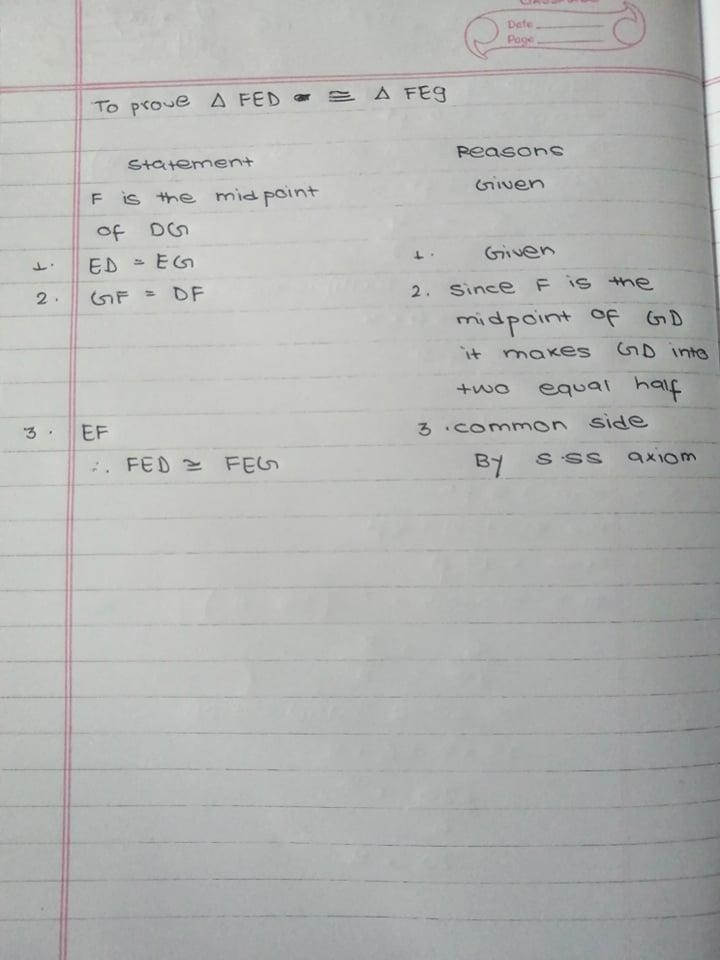 Date
Page
To prove △ FED ≅ △ FEG
Statement Reasons
F is the midpoint Given
of DG
1. ED = EG 1. Given
2. GF = DF 2. Since F is the
midpoint of GD
it makes GD into
two equal half
3. EF 3. common side
∴ FED ≅ FEG By S.SS axiom